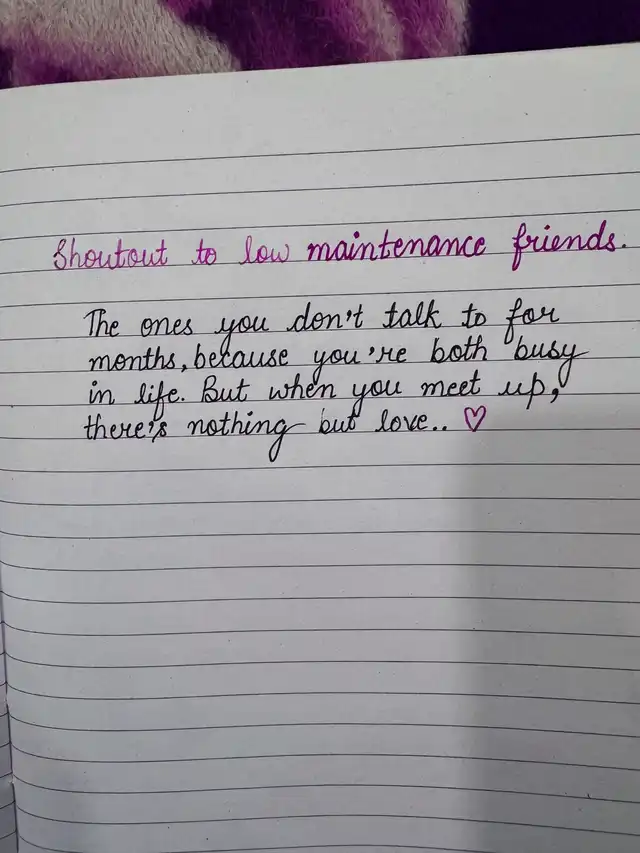 Shoutout to low maintenance friends.
The ones you don't talk to for
months, because you're both busy
in life. But when you meet up,
there's nothing but love.. ♡